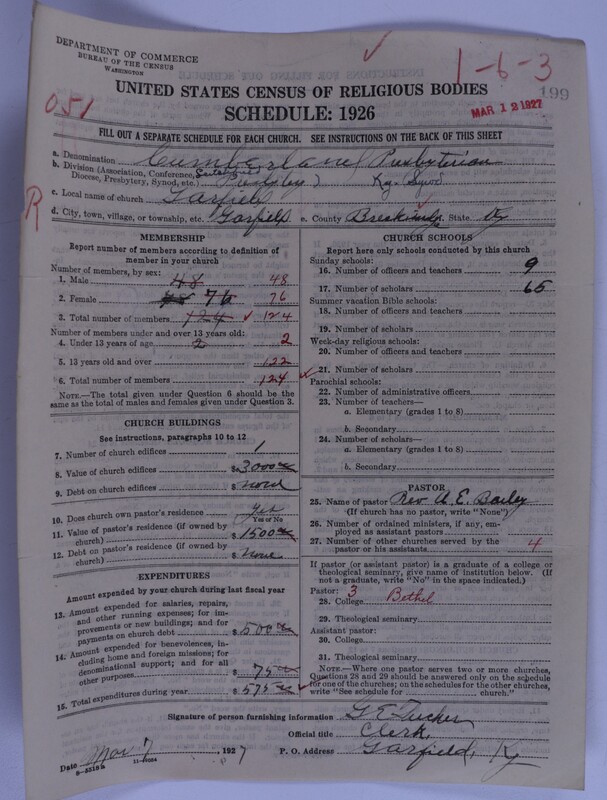 DEPARTMENT OF COMMERCE
BUREAU OF THE CENSUS
WASHINGTON
1-6-3
199
UNITED STATES CENSUS OF RELIGIOUS BODIES
MAR 12 1927
051
SCHEDULE: 1926
FILL OUT A SEPARATE SCHEDULE FOR EACH CHURCH. SEE INSTRUCTIONS ON THE BACK OF THIS SHEET
a. Denomination Cumberland Presbyterian
b. Division (Association, Conference, Diocese, Presbytery, Synod, etc.) Presbytery Ky. Synod
c. Local name of church Garfield
R
d. City, town, village, or township, etc. Garfield e. County Breckinridge State Ky
MEMBERSHIP
Report number of members according to definition of member in your church
Number of members, by sex:
1. Male 48 48
2. Female 76 76
3. Total number of members 124 ✓ 124
Number of members under and over 13 years old:
4. Under 13 years of age 2 2
5. 13 years old and over 122
6. Total number of members 124
NOTE.—The total given under Question 6 should be the same as the total of males and females given under Question 3.
CHURCH BUILDINGS
See instructions, paragraphs 10 to 12
7. Number of church edifices 1
8. Value of church edifices $3000
9. Debt on church edifices $ none
10. Does church own pastor's residence Yes
Yes or No
11. Value of pastor's residence (if owned by church) $1500
12. Debt on pastor's residence (if owned by church) $ none
EXPENDITURES
Amount expended by your church during last fiscal year
13. Amount expended for salaries, repairs, and other running expenses; for improvements or new buildings; and for payments on church debt $500
14. Amount expended for benevolences, including home and foreign missions; for denominational support; and for all other purposes $75
15. Total expenditures during year $575 ✓
CHURCH SCHOOLS
Report here only schools conducted by this church
Sunday schools:
16. Number of officers and teachers 9
17. Number of scholars 65
Summer vacation Bible schools:
18. Number of officers and teachers
19. Number of scholars
Week-day religious schools:
20. Number of officers and teachers
21. Number of scholars
Parochial schools:
22. Number of administrative officers
23. Number of teachers—
a. Elementary (grades 1 to 8)
b. Secondary
24. Number of scholars—
a. Elementary (grades 1 to 8)
b. Secondary
PASTOR
25. Name of pastor Rev. A. E. Bailey
(If church has no pastor, write "None")
26. Number of ordained ministers, if any, employed as assistant pastors
27. Number of other churches served by the pastor or his assistants 4
If pastor (or assistant pastor) is a graduate of a college or theological seminary, give name of institution below. (If not a graduate, write "No" in the space indicated.)
Pastor: 3
28. College Bethel
29. Theological seminary
Assistant pastor:
30. College
31. Theological seminary
NOTE.—Where one pastor serves two or more churches, Questions 28 and 29 should be answered only on the schedule for one of the churches; on the schedules for the other churches, write "See schedule for church."
Signature of person furnishing information G E Tucker
Official title Clerk
Date Mar 7, 1927 P. O. Address Garfield, Ky